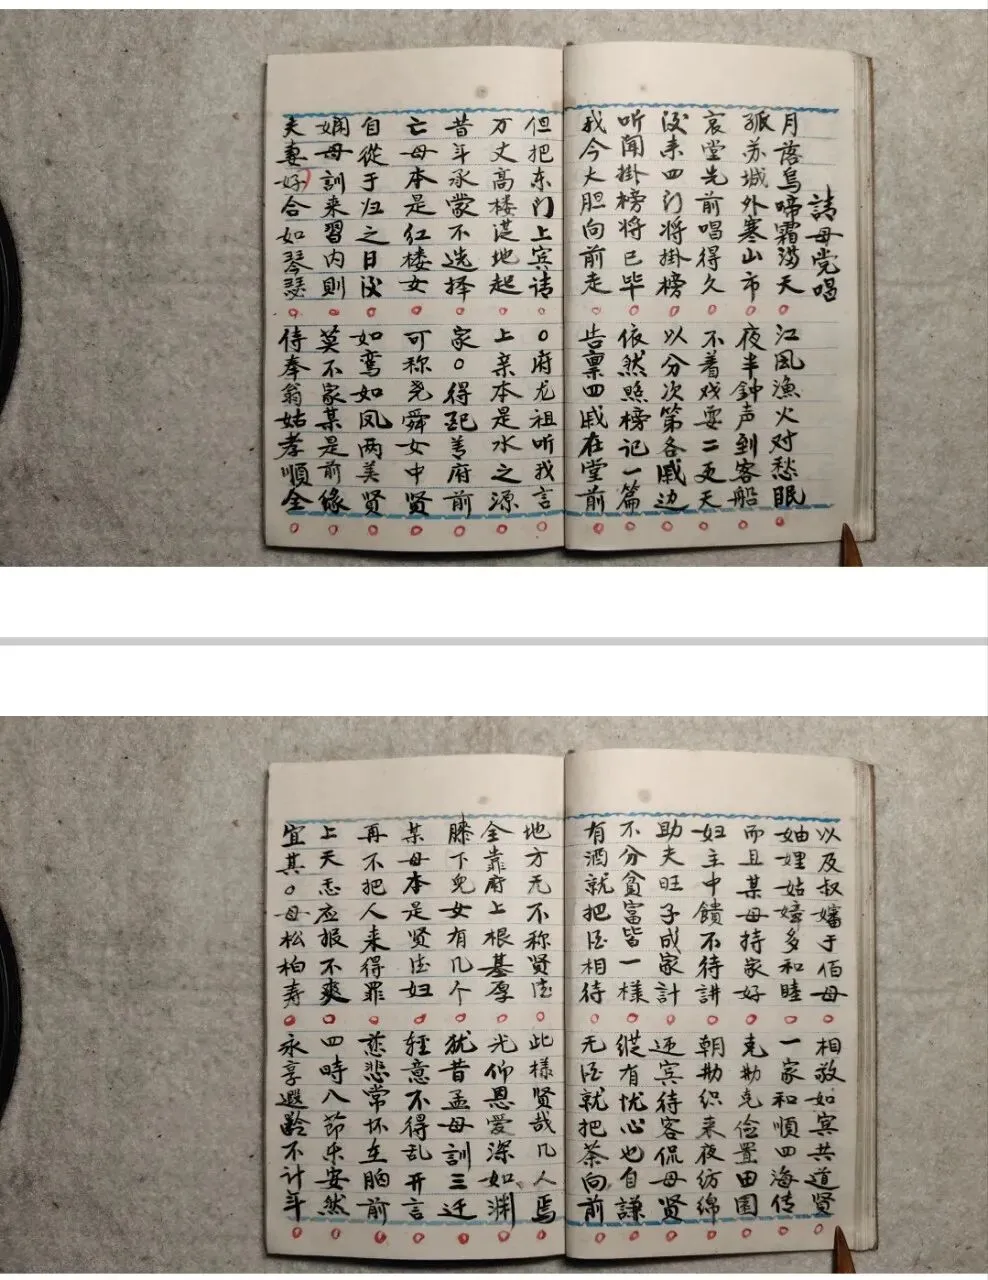 請母党唱
月落烏啼霜满天 江風漁火对愁眠
孤苏城外寒山市 夜半鈡声到客船
哀堂先前唱得久 不着戏耍二更天
没来四门将掛榜 以分次第各戚边
听聞掛榜将已毕 依然照榜记一篇
我今大胆向前走 告禀四戚在堂前
但把东门上宾请 〇府尤祖听我言
万丈高楼從地起 上亲本是水之源
昔年承蒙不选择 家〇得配善府前
亡母本是红楼女 可称尧舜女中贤
自從于归之日後 如鸾如凤两美贤
嫻母訓来習内則 莫不家某是前缘
夫妻好合如琴瑟 侍奉翁姑孝順全
以及叔嬸于伯母 相敬如宾共道贤
妯娌姑嫜多和睦 一家和順四海传
而且某母持家好 克勤克俭置田園
妇主中饋不待讲 朝勤织来夜纺绵
助夫旺子成家計 迊宾待客侃母贤
不分貧富皆一樣 縱有忧心也自謙
有酒就把酒相待 无酒就把茶向前
地方无不称贤德 此樣贤哉几人焉
全靠府上根基厚 光仰恩爱深如渊
膝下児女有几个 犹昔孟母訓三迁
某母本是贤德妇 轻意不得乱开言
再不把人来得罪 慈悲常怀在胸前
上天志应报不爽 四時八節乐安然
宜其〇母松柏寿 永享遐齡不计年